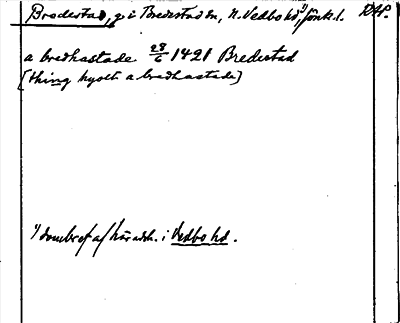 Bredestad, g i Bredestad sn, N. Vedbo hd¹⁾, Jönk. l. RAP.
a bredhastade 28/6 1421 Bredestad
(thing hyolt a bredhastade)
¹⁾ dombref af häradsh. i Vedbo hd.